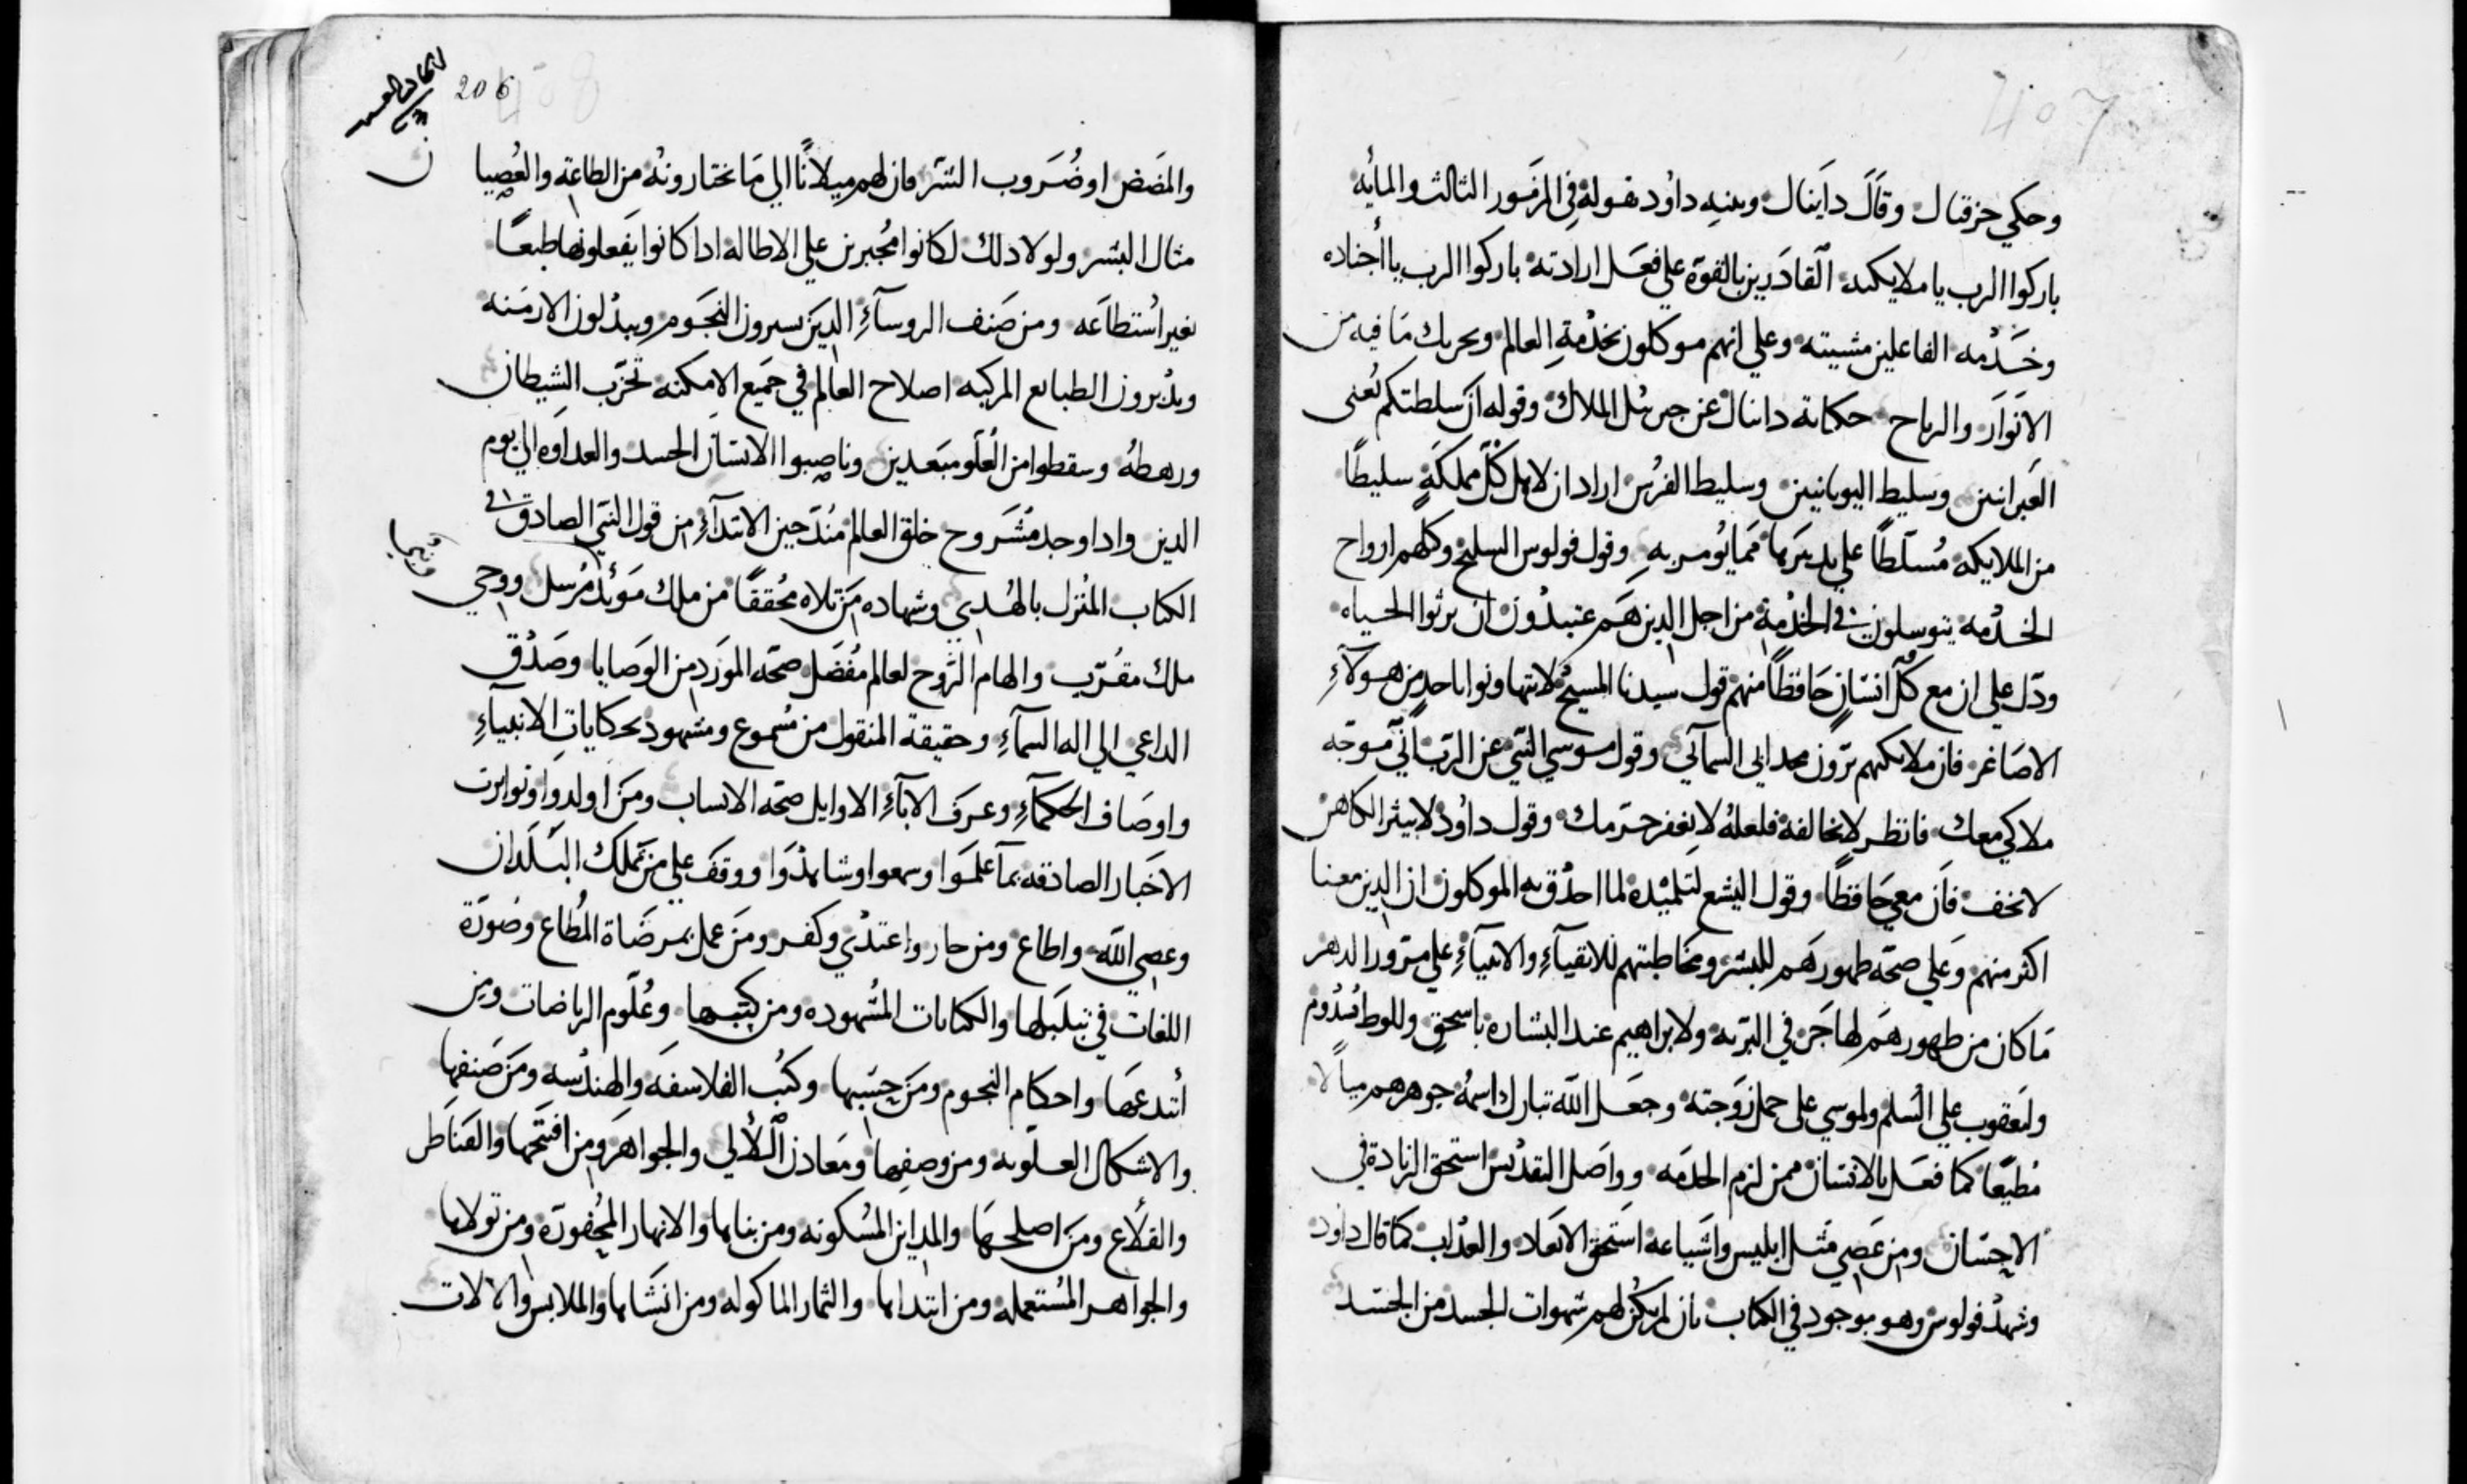 407
وحكي حزقيال وقال دانيال وبنيه داود بقوله في المزمور الثالث والمايه
باركوا الرب يا ملايكته القادرين بالقوة علي فعل ارادته باركوا الرب يا أجناده
وخدمه الفاعلين مشيته وعلي انهم موكلون بخدمة العالم وتحريك ما فيه من
الانوار والرياح حكاية دانيال عن جبرئيل الملاك وقوله ان سلطتكم يعني
العبرانيين وسليط اليونانيين وسليط الفرس اراد ان لاهل كل مملكة سليطًا
من الملايكه مُسلّطًا علي تدبيرها مما يُومر به وقول فولوس السليح وكلهم ارواح
الخدمه يتوسلون في الخدمة من اجل الدين هم عتيدون ان يرثوا الحياه
ودل علي ان مع كل انسان حافظًا منهم قول سيدنا المسيح لا تتهاونوا باحد من هولآء
الاصاغر فان ملايكتهم يرون مجد ابي السمآئي وقول موسي النبي عن الرب اني موجه
ملاكي معك فانظر لا تخالفه فلعله لا يغفر جرمك وقول داود لا يبثر الكاهن
لا تخف فان معي حافظًا وقول اليشع لتلميذه لما احدق به الموكلون ان الدين معنا
اكثر منهم وعلي صحة ظهورهم للبشر ومخاطبتهم للاتقيآء والانبيآء علي مرور الدهر
ما كان من ظهورهم لهاجر في البرية ولابراهيم عند البشاره باسحق وللوط بسدوم
وليعقوب علي السلم ولموسي علي حمل زوجته وجعل الله تبارك اسمه جوهرهم ميالا
مطيعًا كما فعل بالانسان فمن لزم الخدمه وواصل التقديس استحق الزيادة في
الاحسان ومن عصي مثل ابليس واشياعه استحق الابعاد والعذاب كما قال داود
وشهد فولوس وهو موجود في الكتاب بان لم يكن لهم شهوات الجسد من الحسد
206
408
والمضض او ضروب الشر فان لهم ميلانًا الي ما يختارونه من الطاعة والعُصيا
ن
مثال البشر ولولا دلك لكانوا مُجبرين علي الاطاله ادا كانوا يفعلونها طبعًا
بغير استطاعه ومن صنف الروسآء الدين يسيرون النجوم ويبدلون الازمنه
ويدبرون الطبايع المركبه اصلاح العالم في جميع الامكنه تحزب الشيطان
ورهطه وسقطوا من العلو مبعدين وناصبوا الانسان الحسد والعداوه الي يوم
الدين وادا وجد مشروح خلق العالم مند حين الابتدآء من قول النبي الصادق في
الكتاب المنزل بالهدي وشهاده من تلاه محققًا من ملك موئد مرسل ووحي
ملك مقرب والهام الروح لعالم مفضل صحة المورد من الوصايا وصدق
الداعي الي اله السمآء وحقيقة المنقول من مسموع ومشهود بحكايات الانبيآء
واوصاف الحكمآء وعرف الابآء الاوايل صحة الانساب ومن اولدوا وتواترت
الاخبار الصادقه بمآ علموا وسمعوا وشاهدوا ووقف علي من تملك البلدان
وعصي الله واطاع ومن جار واعتدي وكفر ومن عمل بمرضاة المطاع وصورة
اللغات في تبلبلها والكتابات المشهوده ومن كتبها وعلوم الرياضات ومن
ابتدعها واحكام النجوم ومن حسبها وكتب الفلاسفه والهندسه ومن صنفها
والاشكال العلويه ومن وصفها ومعادن اللألي والجواهر ومن افتتحها والقناطر
والقلاع ومن اصلحها والمداين المسكونه ومن بناها والانهار المحفورة ومن تولاها
والجواهر المستعمله ومن ابتداها والثمار الماكوله ومن انشاها والملابس والالات